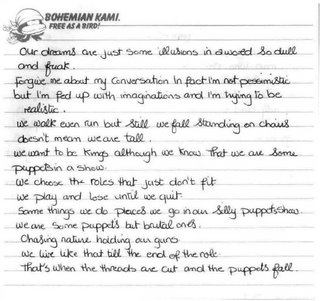 BOHEMIAN KAMI.
FREE AS A BIRD!
Our dreams are just some illusions in a world so dull
and freak.
Forgive me about my conversation In fact I'm not pessimistic
but I'm fed up with imaginations and I'm trying to be
realistic.
We walk even run but still we fall standing on chairs
doesn't mean we are tall.
we want to be kings although we know That we are some
puppets in a show.
We choose the roles that just don't fit
we play and lose until we quit.
Some things we do places we go in our silly puppetshow.
we are some puppets but brutal ones.
Chasing nature holding our guns
we live like that till the end of the role.
That's when the threads are cut and the puppets fall.